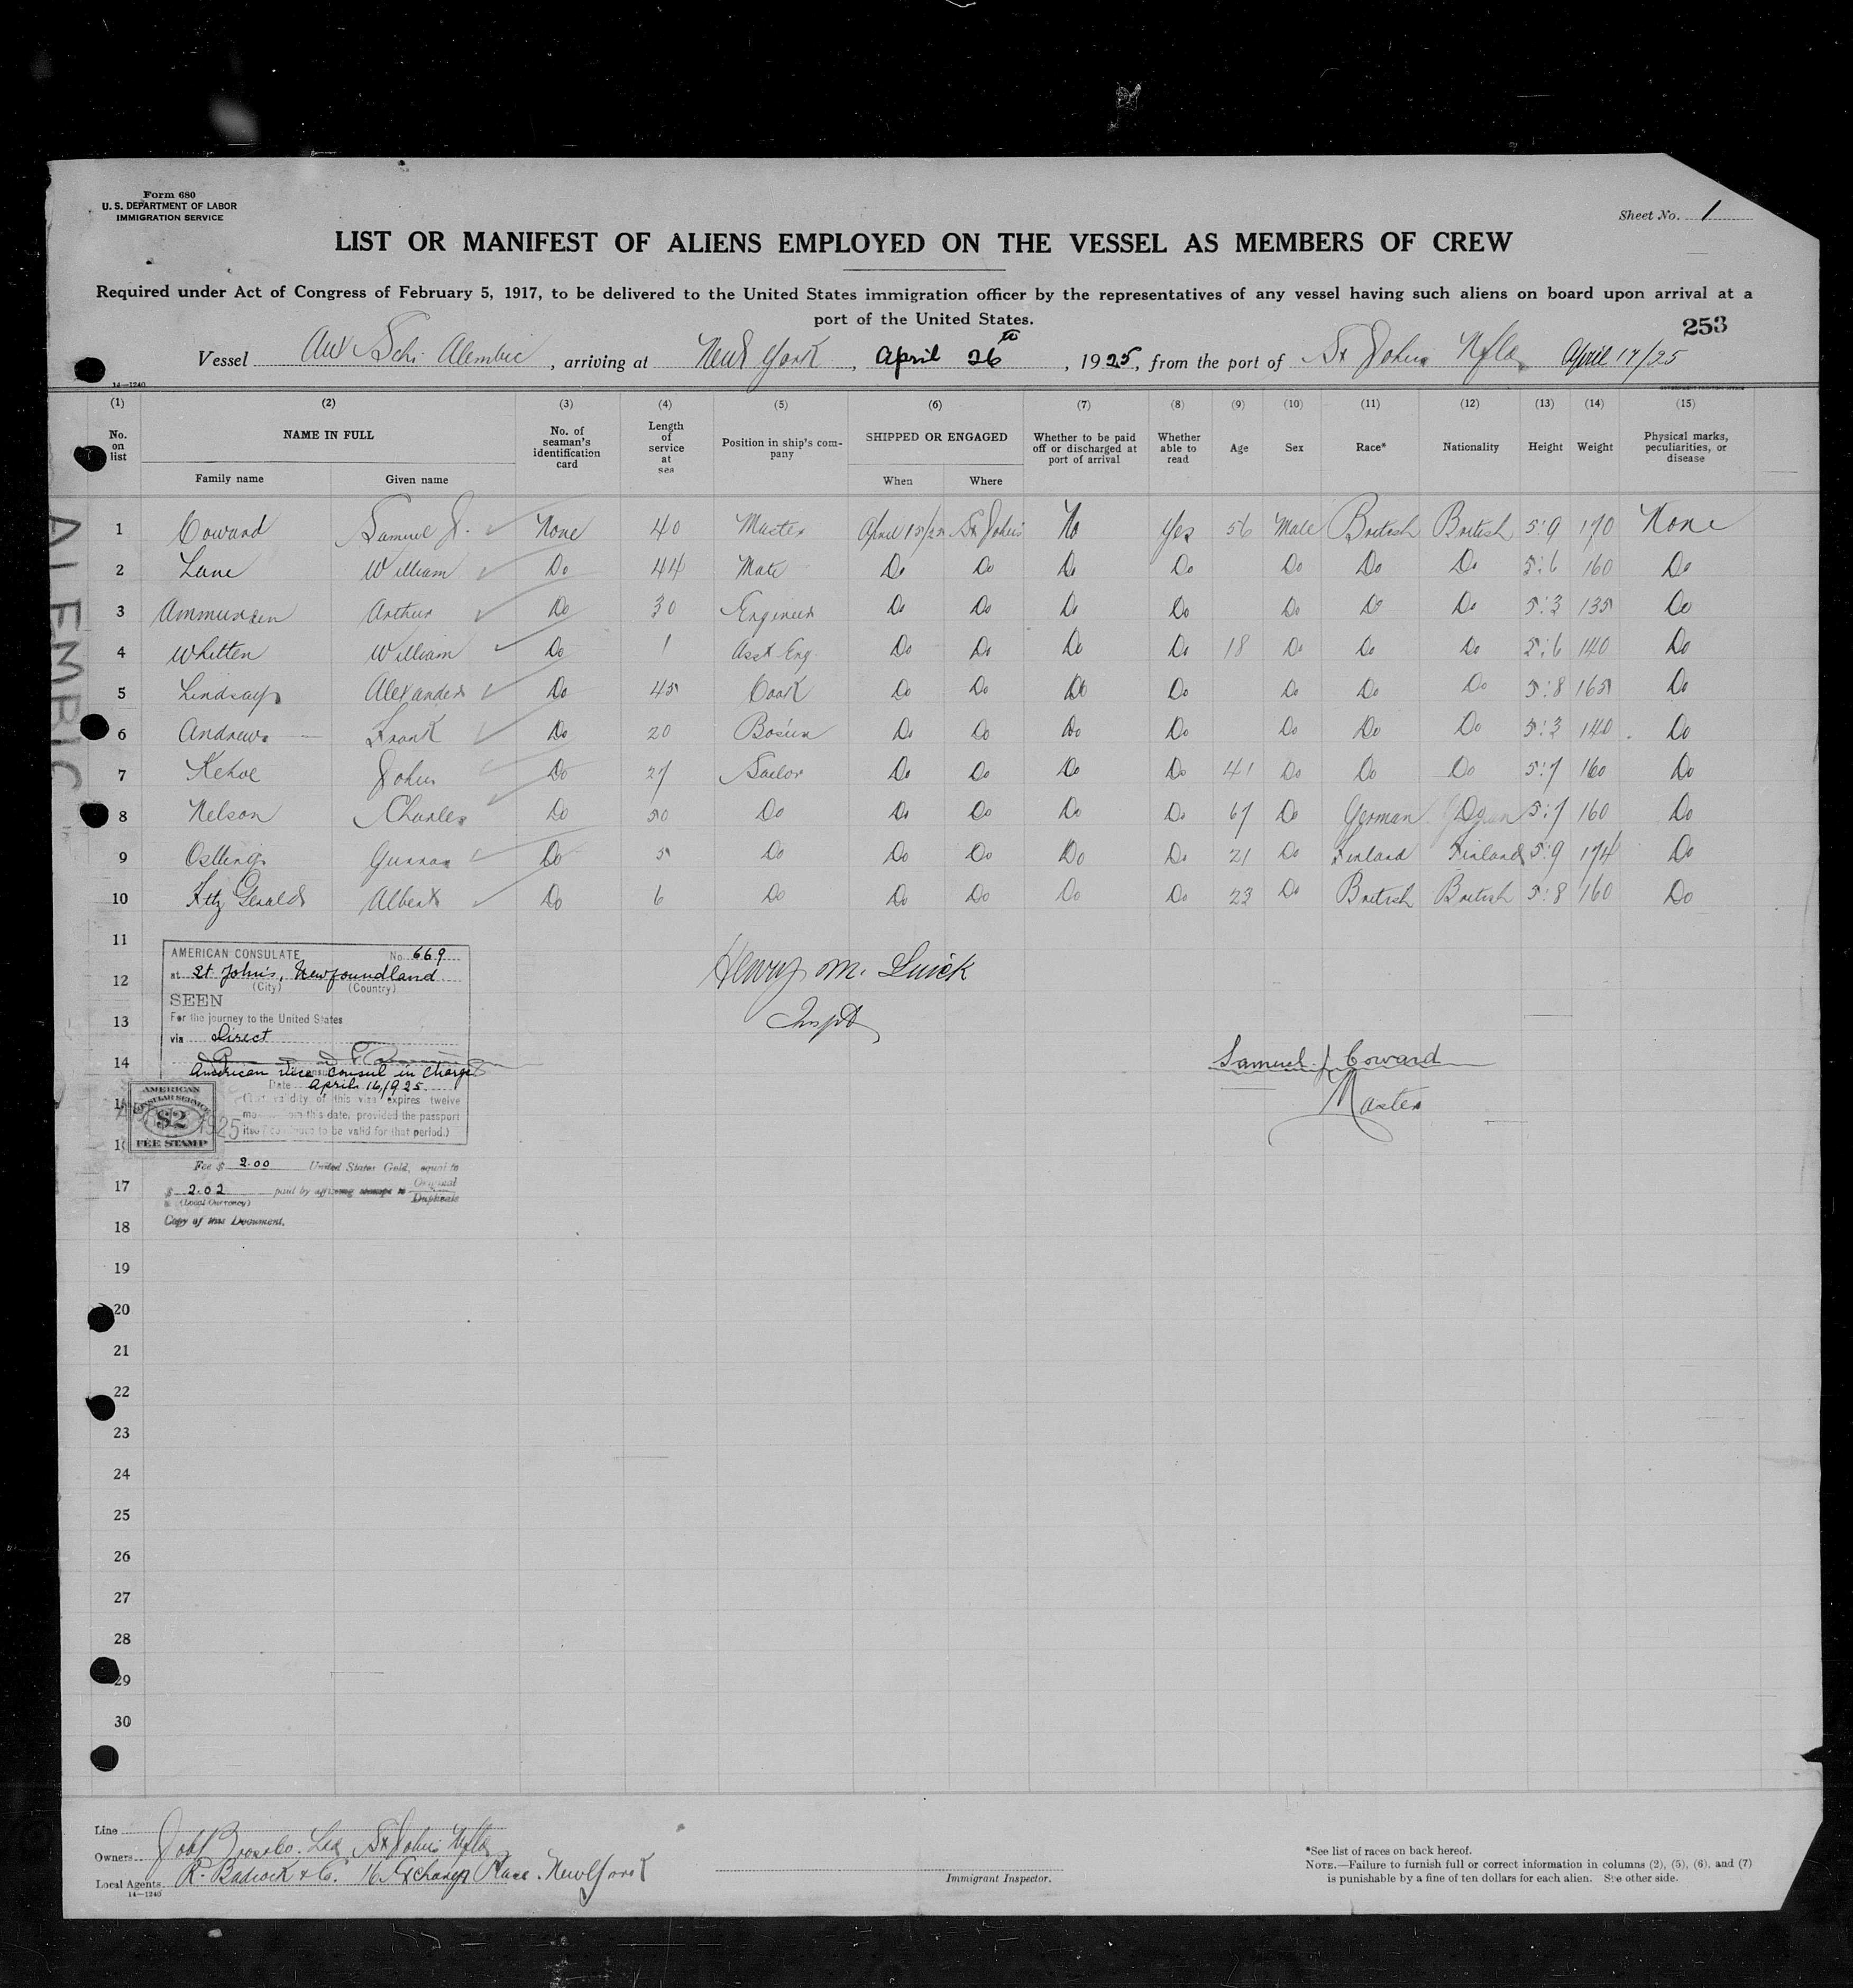 Form 680
U. S. DEPARTMENT OF LABOR
IMMIGRATION SERVICE
Sheet No. 1
LIST OR MANIFEST OF ALIENS EMPLOYED ON THE VESSEL AS MEMBERS OF CREW
Required under Act of Congress of February 5, 1917, to be delivered to the United States immigration officer by the representatives of any vessel having such aliens on board upon arrival at a
port of the United States.
253
Vessel Aux Schr Alembic, arriving at New York, April 26th, 1925, from the port of St Johns Nfld April 17/25
14—1240
(1) (2) (3) (4) (5) (6) (7) (8) (9) (10) (11) (12) (13) (14) (15)
No. on list NAME IN FULL Family name Given name No. of seaman's identification card Length of service at sea Position in ship's company SHIPPED OR ENGAGED When Where Whether to be paid off or discharged at port of arrival Whether able to read Age Sex Race* Nationality Height Weight Physical marks, peculiarities, or disease
1 Coward Samuel J. None 40 Master April 15/25 St Johns No Yes 56 Male British British 5:9 170 None
2 Lane William Do 44 Mate Do Do Do Do Do Do Do 5:6 160 Do
3 Ammunsen Arthur Do 30 Engineer Do Do Do Do Do Do Do 5:3 135 Do
4 Whitten William Do 1 Asst Eng. Do Do Do Do 18 Do Do Do 5:6 140 Do
5 Lindsay Alexander Do 45 Cook Do Do Do Do Do Do Do 5:8 165 Do
6 Andrews Frank Do 20 Bosun Do Do Do Do Do Do Do 5:3 140 Do
7 Kehoe John Do 27 Sailor Do Do Do Do 41 Do Do Do 5:7 160 Do
8 Nelson Charles Do 50 Do Do Do Do Do 67 Do German 5:7 160 Do
9 Ostling Gunnar Do 5 Do Do Do Do Do 21 Do Finland Finland 5:9 174 Do
10 Fitz Gerald Albert Do 6 Do Do Do Do Do 23 Do British British 5:8 160 Do
ALEMBIC
11
12
13
14
17
18
19
20
21
22
23
24
25
26
27
28
29
30
AMERICAN CONSULATE No. 669
at St. John's, Newfoundland
(City) (Country)
SEEN
For the journey to the United States
via Direct
American Vice Consul in Charge
Date April 16, 1925.
validity of this visa expires twelve
from this date, provided the passport
to be valid for that period.)
AMERICAN
CONSULAR SERVICE
$2
FEE STAMP
1925
Fee $ 2.00 United States Gold, equal to
$ 2.02 paid by Original
(Local Currency) Duplicate
Copy of this Document.
Henry M. Quick
Inspt
Samuel J Coward
Master
Line
Owners Job Bros & Co. Ltd St Johns Nfld
Local Agents R. Badcock & Co. 16 Exchange Place. New York
14—1240
Immigrant Inspector.
*See list of races on back hereof.
NOTE.—Failure to furnish full or correct information in columns (2), (5), (6), and (7)
is punishable by a fine of ten dollars for each alien. See other side.